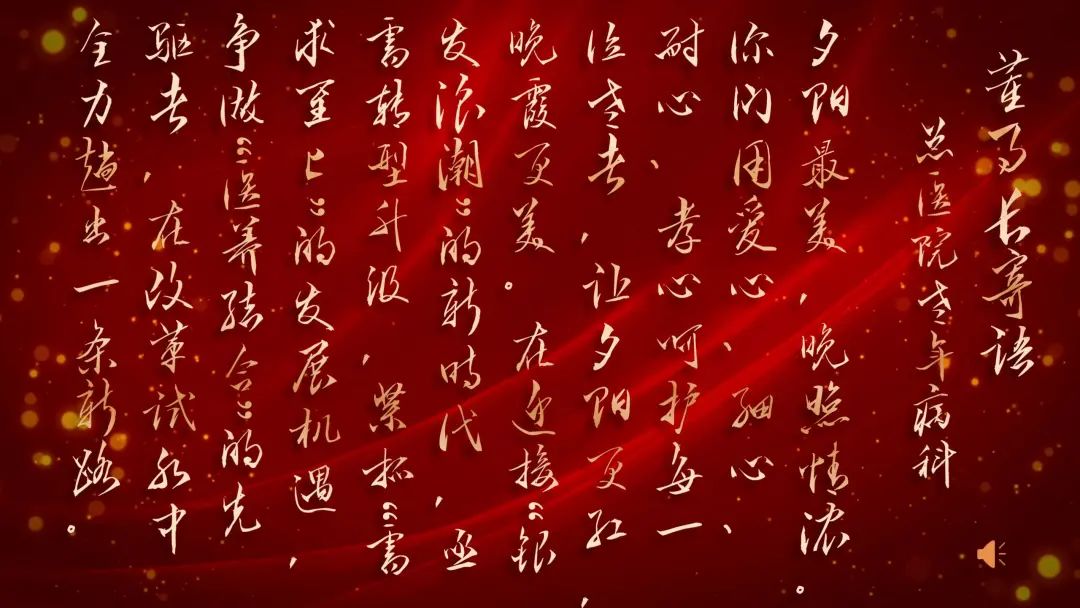 董事长寄语
总医院老年病科
夕阳最美，晚照情浓。
你们用爱心、细心、
耐心、孝心呵护每一
位老者，让夕阳更红，
晚霞更美。在迎接“银
发浪潮”的新时代，亟
需转型升级，紧抓“需
求至上”的发展机遇，
争做“医养结合”的先
驱者，在改革试水中
全力趟出一条新路。